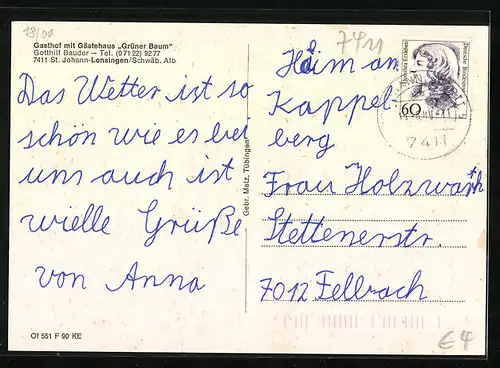 18/00
Gasthof mit Gästehaus „Grüner Baum“
Gotthilf Bauder – Tel. (07122) 9277
7411 St. Johann-Lonsingen/Schwäb. Alb
Das Wetter ist so
schön wie es bei
uns auch ist
wielle Grüße
von Anna
Of 551 F 90 KE
Gebr. Metz, Tübingen
7411
Heim am
Kappel
berg
Frau Holzwarth
Stettenerstr.
7012 Fellbach
60
Deutsche Bundespost
7411
€ 4